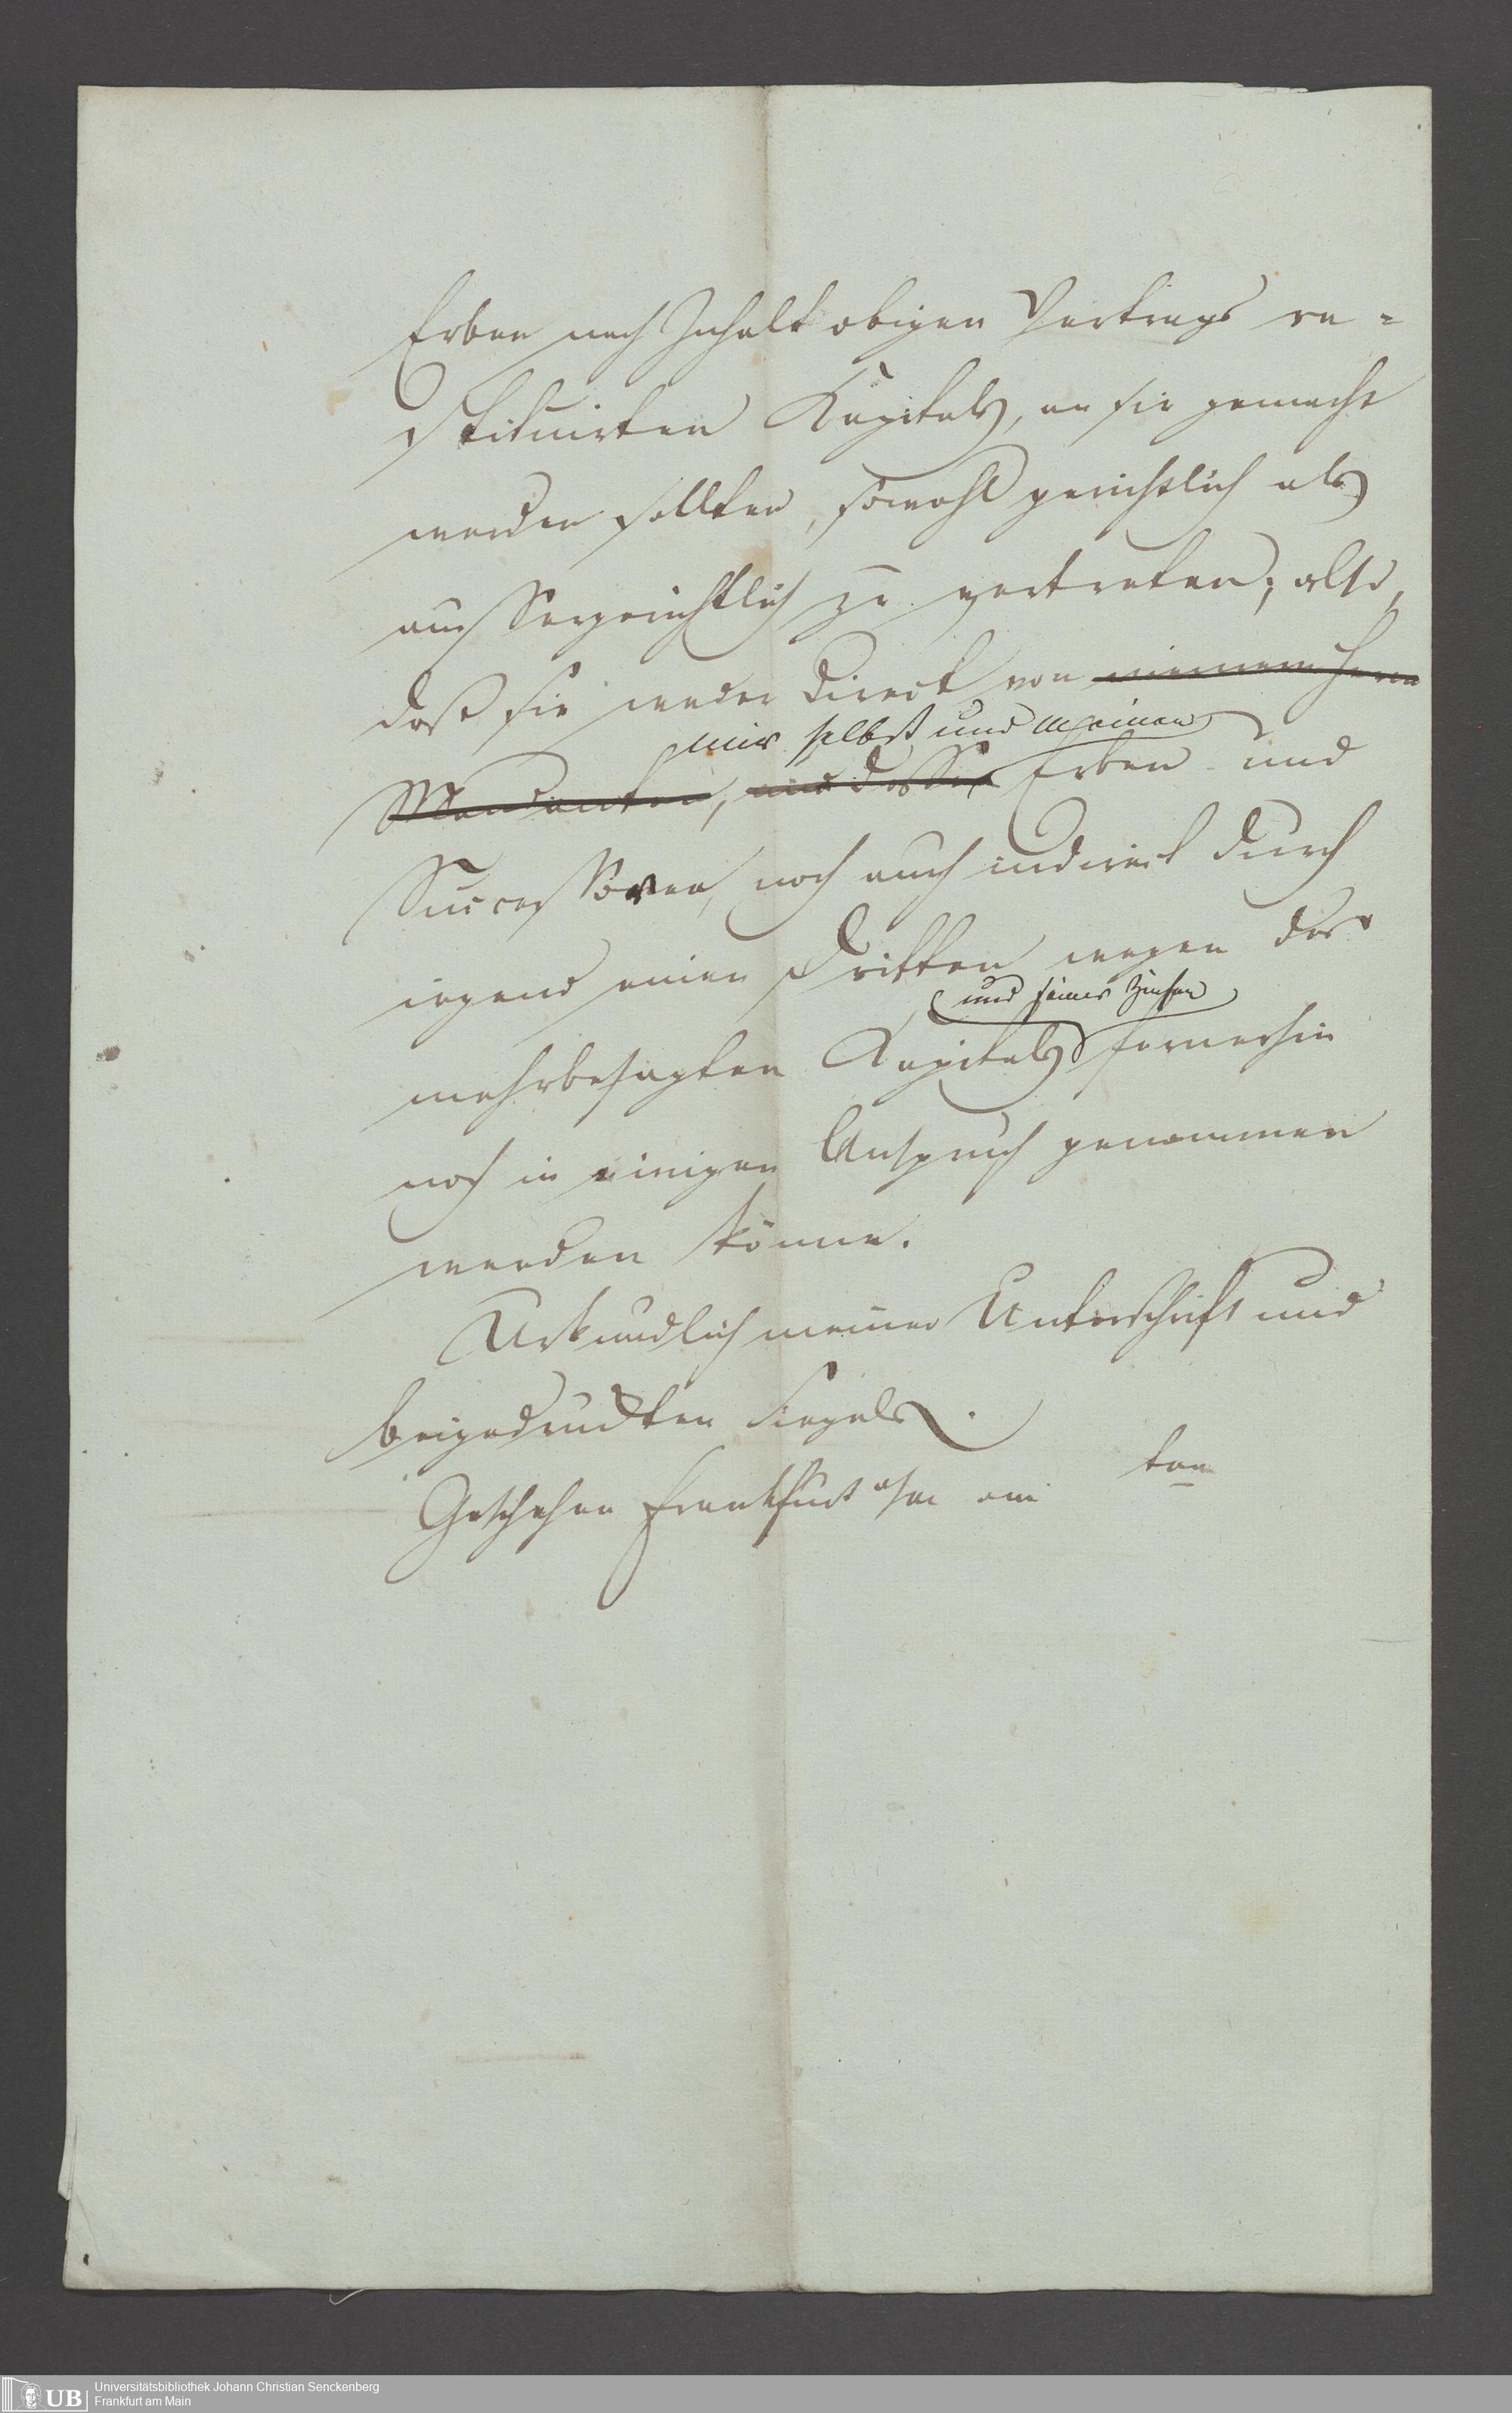 Erben nach Inhalt obigen Vertrags re-
stituirten Kapitals, an sie gemacht
werden sollten, sowohl gerichtlich als
aussergerichtlich zu vertreten; also,
daß sie weder direct von meinem Herrn
mir selbst und meinen
Mandanten, und dessen Erben und
Successoren, noch auch indirect durch
irgend einen Dritten wegen des
und seiner Zinsen
mehrbesagten Kapitals fernerhin
noch in einigen Anspruch genommen
werden könne.
Urkundlich meiner Unterschrift und
beigedruckten Siegels.
Geschehen Frankfurt a/m am ten
UB Universitätsbibliothek Johann Christian Senckenberg
Frankfurt am Main